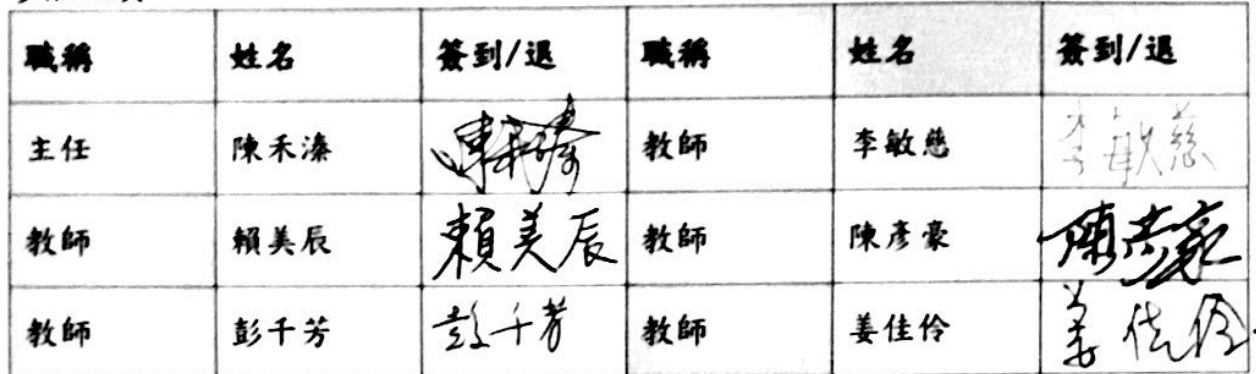 職稱 姓名 簽到/退 職稱 姓名 簽到/退
主任 陳禾溱 陳禾溱 教師 李敏慈 李敏慈
教師 賴美辰 賴美辰 教師 陳彥豪 陳彥豪
教師 彭千芳 彭千芳 教師 姜佳伶 姜佳伶